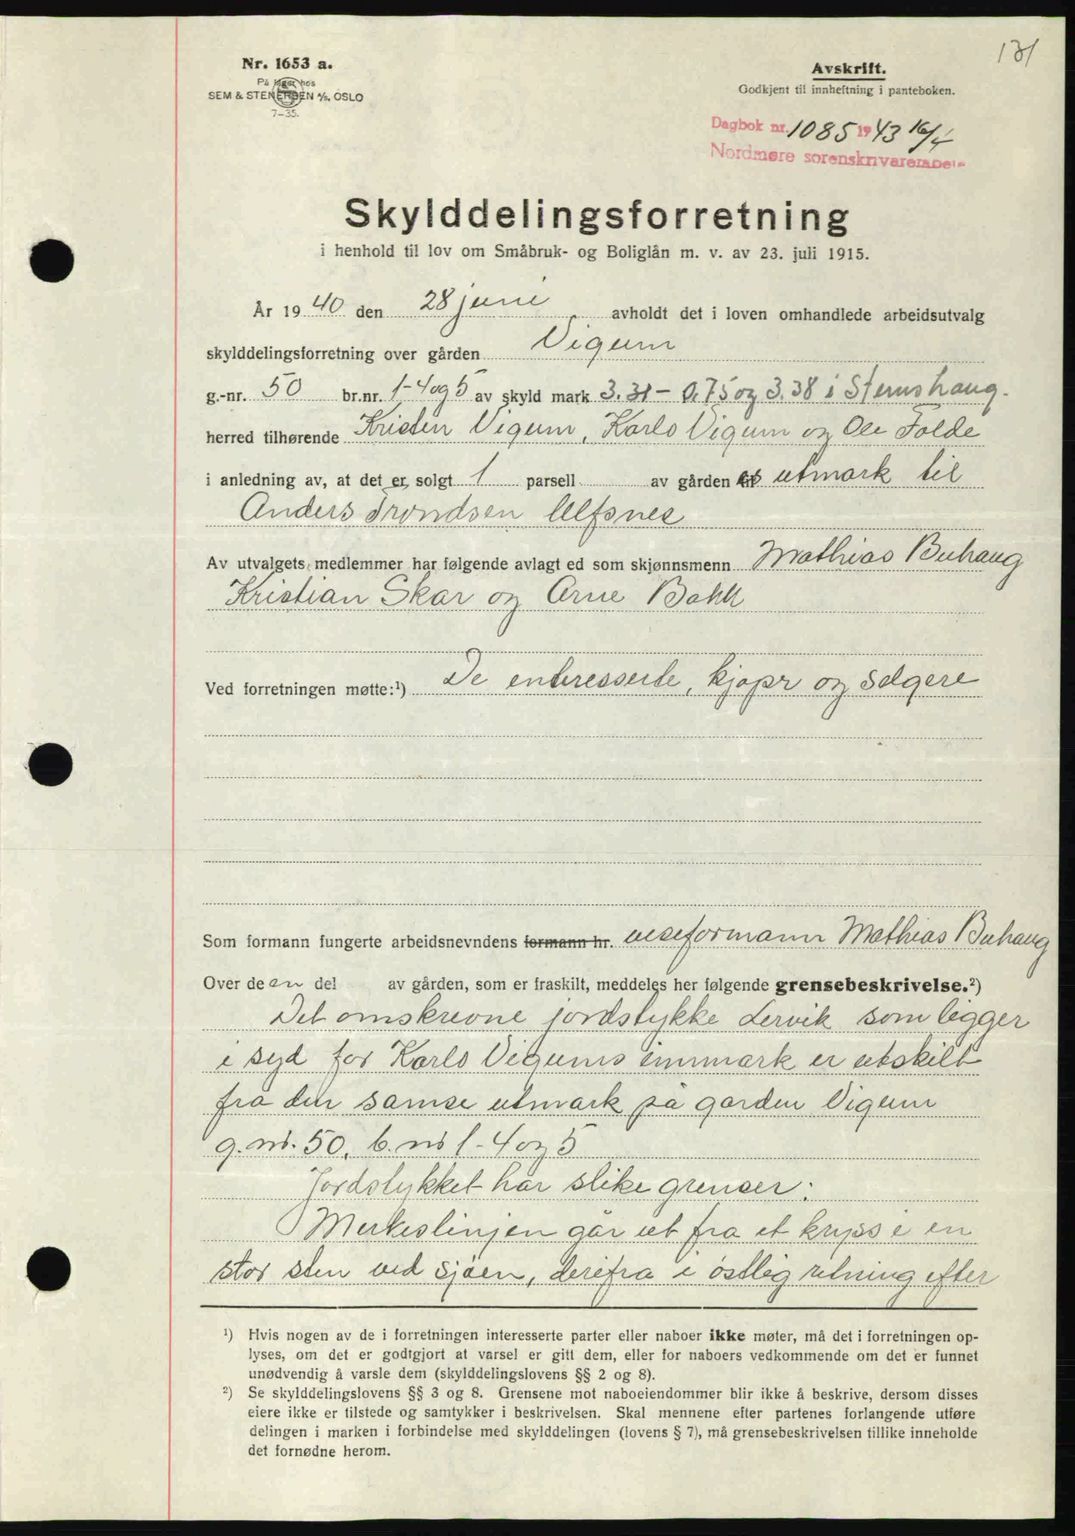 131
Nr. 1653 a.
På lager hos
SEM & STENERSEN A/S, OSLO
7-35.
Avskrift.
Godkjent til innheftning i panteboken.
Dagbok nr. 1085 1943 16/4
Nordmøre sorenskrivarembete
Skylddelingsforretning
i henhold til lov om Småbruk- og Boliglån m. v. av 23. juli 1915.
År 1940 den 28 juni avholdt det i loven omhandlede arbeidsutvalg
skylddelingsforretning over gården Vigum
g.-nr. 50 br.nr. 1-4 og 5 av skyld mark 3.31 - 0.75 og 3.38 i Stemshaug
herred tilhørende Kristen Vigum, Karlo Vigum og Ole Folde
i anledning av, at det er solgt 1 parsell av gården utmark til
Anders Trondsen Ulfsnes
Av utvalgets medlemmer har følgende avlagt ed som skjønnsmenn Mathias Buhaug
Kristian Skar og Arne Bakk
Ved forretningen møtte:¹) De entresserte, kjøper og selgere
Som formann fungerte arbeidsnevndens formann hr. viseformann Mathias Buhaug
Over de en del av gården, som er fraskilt, meddeles her følgende grensebeskrivelse.²)
Det omskrevne jordstykke Lervik som ligger
i syd for Karlo Vigums innmark er utskilt
fra den samse utmark på garden Vigum
g.nr. 50, b.nr 1-4 og 5
Jordstykket har slike grenser:
Merkeslinjen går ut fra et kryss i en
stor sten ved sjøen, derifra i østlig retning efter
¹) Hvis nogen av de i forretningen interesserte parter eller naboer ikke møter, må det i forretningen op-
lyses, om det er godtgjort at varsel er gitt dem, eller for naboers vedkommende om det er funnet
unødvendig å varsle dem (skylddelingslovens §§ 2 og 8).
²) Se skylddelingslovens §§ 3 og 8. Grensene mot naboeiendommer blir ikke å beskrive, dersom disses
eiere ikke er tilstede og samtykker i beskrivelsen. Skal mennene efter partenes forlangende utføre
delingen i marken i forbindelse med skylddelingen (lovens § 7), må grensebeskrivelsen tillike inneholde
det fornødne herom.